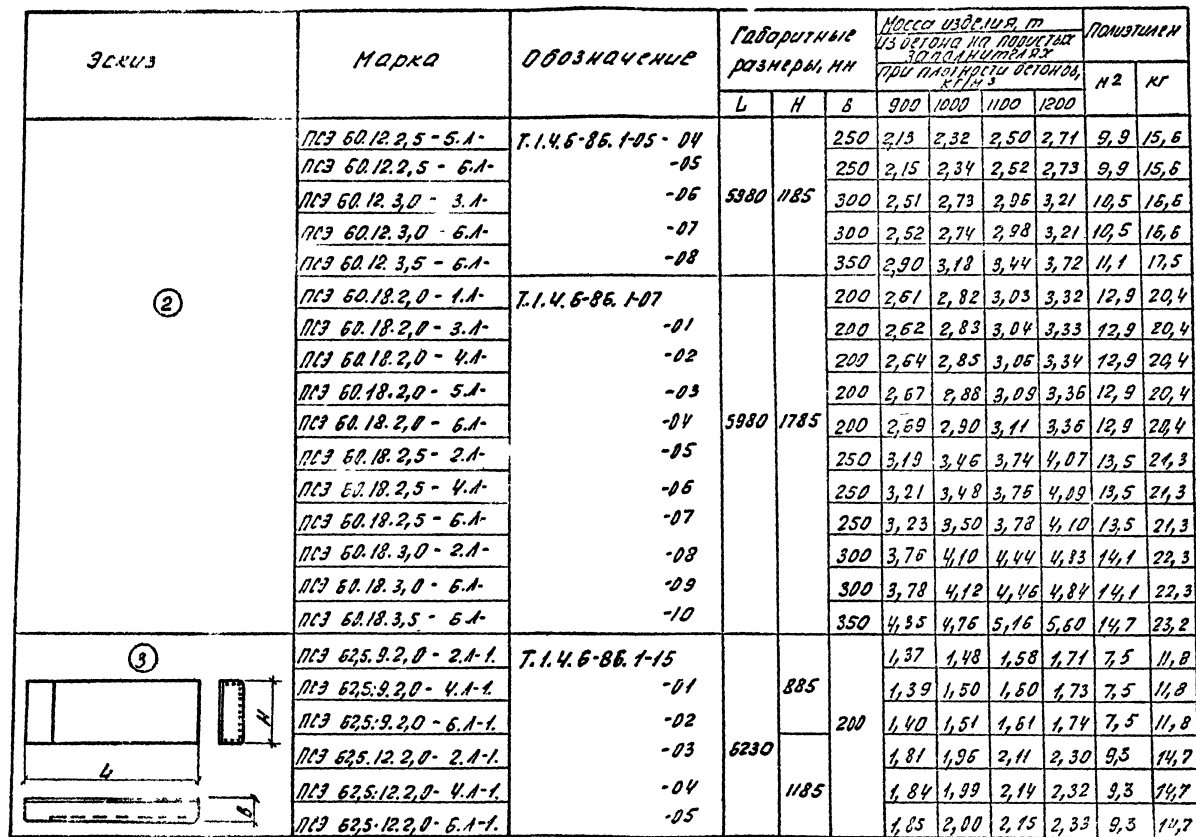 Эскиз Марка Обозначение Габаритные размеры, мм Масса изделия, т из бетона на пористых заполнителях при плотности бетонов, кг/м3 Полиэтилен
L H B 900 1000 1100 1200 м2 кг
ПСЭ 60.12.2,5 - 5.Л- Т.1.4.6-86.1-05 - 04 250 2,13 2,32 2,50 2,71 9,9 15,6
ПСЭ 60.12.2,5 - 6.Л- -05 250 2,15 2,34 2,52 2,73 9,9 15,6
ПСЭ 60.12.3,0 - 3.Л- -06 5980 1185 300 2,51 2,73 2,96 3,21 10,5 16,6
ПСЭ 60.12.3,0 - 6.Л- -07 300 2,52 2,74 2,98 3,21 10,5 16,6
ПСЭ 60.12.3,5 - 6.Л- -08 350 2,90 3,18 3,44 3,72 11,1 17,5
2 ПСЭ 60.18.2,0 - 1.Л- Т.1.4.6-86.1-07 200 2,61 2,82 3,03 3,32 12,9 20,4
ПСЭ 60.18.2,0 - 3.Л- -01 200 2,62 2,83 3,04 3,33 12,9 20,4
ПСЭ 60.18.2,0 - 4.Л- -02 200 2,64 2,85 3,06 3,34 12,9 20,4
ПСЭ 60.18.2,0 - 5.Л- -03 200 2,67 2,88 3,09 3,36 12,9 20,4
ПСЭ 60.18.2,0 - 6.Л- -04 5980 1785 200 2,69 2,90 3,11 3,36 12,9 20,4
ПСЭ 60.18.2,5 - 2.Л- -05 250 3,19 3,46 3,74 4,07 13,5 21,3
ПСЭ 60.18.2,5 - 4.Л- -06 250 3,21 3,48 3,76 4,09 13,5 21,3
ПСЭ 60.18.2,5 - 6.Л- -07 250 3,23 3,50 3,78 4,10 13,5 21,3
ПСЭ 60.18.3,0 - 2.Л- -08 300 3,76 4,10 4,44 4,83 14,1 22,3
ПСЭ 60.18.3,0 - 6.Л- -09 300 3,78 4,12 4,46 4,84 14,1 22,3
ПСЭ 60.18.3,5 - 6.Л- -10 350 4,35 4,76 5,16 5,60 14,7 23,2
3 ПСЭ 62,5.9.2,0 - 2.Л-1. Т.1.4.6-86.1-15 1,37 1,48 1,58 1,71 7,5 11,8
ПСЭ 62,5.9.2,0 - 4.Л-1. -01 885 1,39 1,50 1,60 1,73 7,5 11,8
H ПСЭ 62,5.9.2,0 - 6.Л-1. -02 200 1,40 1,51 1,61 1,74 7,5 11,8
L ПСЭ 62,5.12.2,0 - 2.Л-1. -03 6230 1,81 1,96 2,11 2,30 9,3 14,7
ПСЭ 62,5.12.2,0 - 4.Л-1. -04 1185 1,84 1,99 2,14 2,32 9,3 14,7
B ПСЭ 62,5.12.2,0 - 6.Л-1. -05 1,85 2,00 2,15 2,33 9,3 14,7